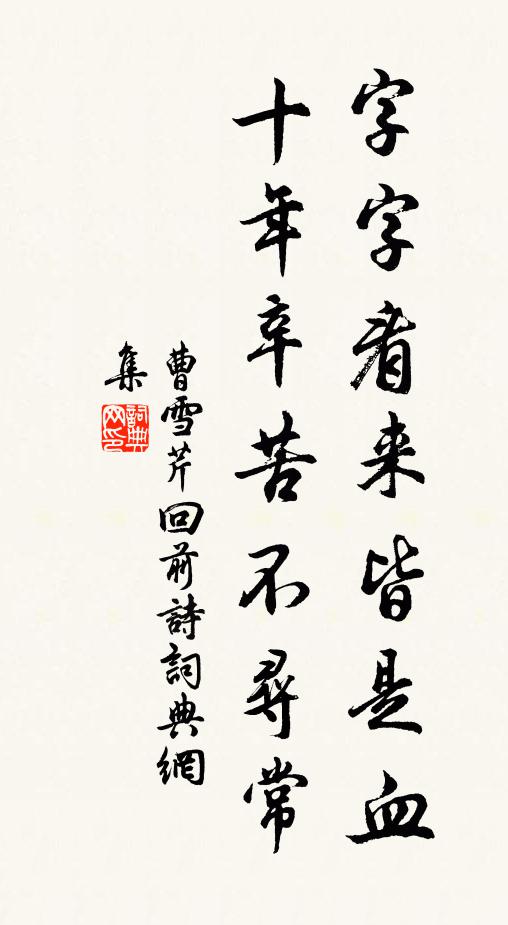 字字看来皆是血
十年辛苦不尋常
曹雪芹回前詩詞典網
集
詞典网印